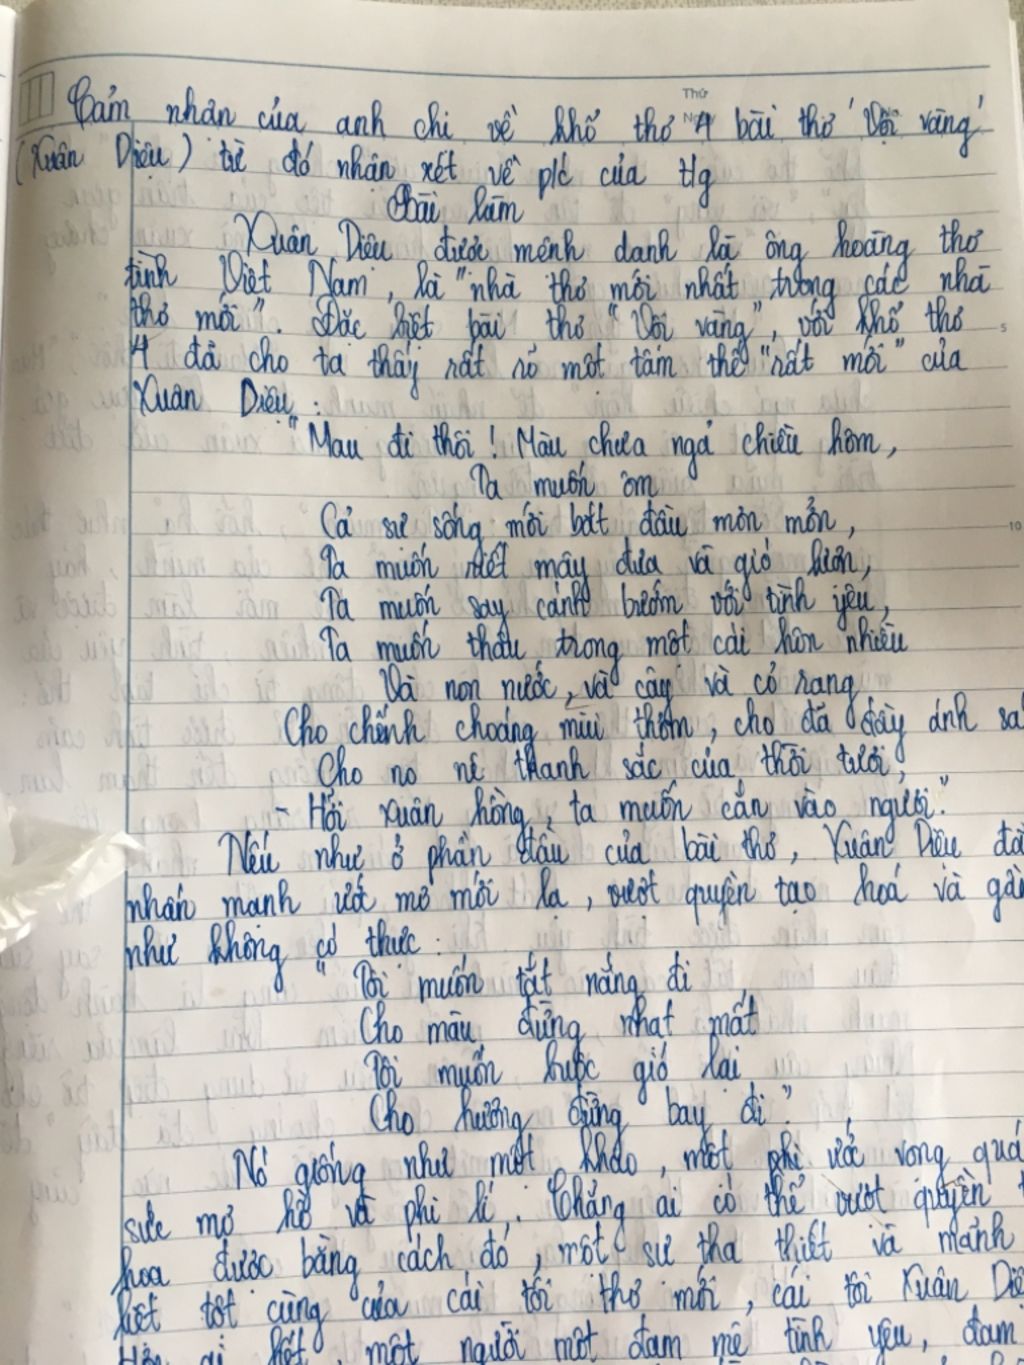 Thứ
Cảm nhận của anh chị về khổ thơ 4 bài thơ "Vội vàng"
(Xuân Diệu) từ đó nhận xét về p/c của t/g
Bài làm
Xuân Diệu được mệnh danh là ông hoàng thơ
tình Việt Nam, là "nhà thơ mới nhất trong các nhà
thơ mới". Đặc biệt bài thơ "Vội vàng", với khổ thơ
4 đã cho ta thấy rất rõ một tâm thế "rất mới" của
Xuân Diệu:
"Mau đi thôi! Màu chưa ngả chiều hôm,
Ta muốn ôm
Cả sự sống mới bắt đầu mơn mởn,
Ta muốn riết mây đưa và gió lượn,
Ta muốn say cánh bướm với tình yêu,
Ta muốn thâu trong một cái hôn nhiều
Và non nước, và cây, và cỏ rạng
Cho chếnh choáng mùi thơm, cho đã đầy ánh
Cho no nê thanh sắc của thời tươi,
- Hỡi xuân hồng, ta muốn cắn vào ngươi."
Nếu như ở phần đầu của bài thơ, Xuân Diệu đã
nhấn mạnh ước mơ mới lạ, vượt quyền tạo hoá và
như không có thực:
"Tôi muốn tắt nắng đi
Cho màu đừng nhạt mất
Tôi muốn buộc gió lại
Cho hương đừng bay đi."
Nó giống như một khao, một phi ước vọng quá
sức mơ hồ và phi lí. Chẳng ai có thể vượt quyền
hoá được bằng cách đó, một sự tha thiết và mãnh
liệt tột cùng của cái tôi thơ mới, cái tôi Xuân
hết, một người một đam mê tình yêu, đam